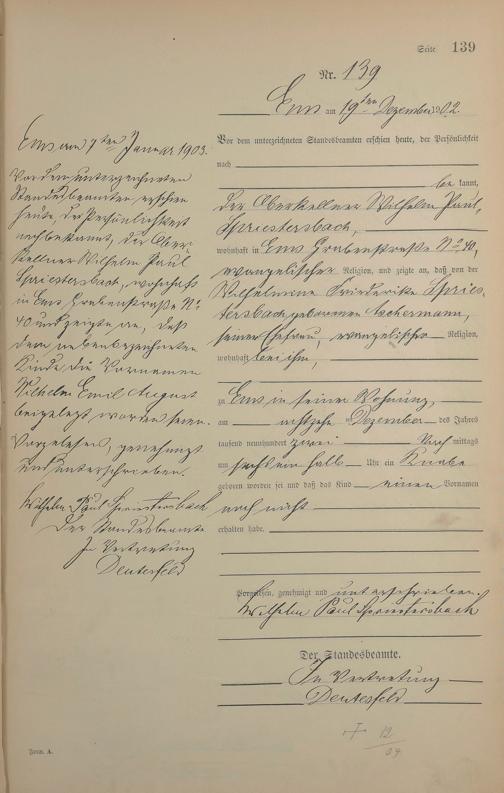 Seite 139
Nr. 139
Ems am 19ten Dezember 1902.
Vor dem unterzeichneten Standesbeamten erschien heute, der Persönlichkeit
nach
be kannt,
der Oberkellner Wilhelm Paul
Spriestersbach,
wohnhaft in Ems Grabenstraße No 40,
evangelischer Religion, und zeigte an, daß von der
Wilhelmine Friederike Spries-
tersbach geborenen Ackermann,
seiner Ehefrau, evangelischer Religion,
wohnhaft bei ihm,
zu Ems in seiner Wohnung,
am achtzehn ten Dezember des Jahres
tausend neunhundert zwei Vor mittags
um sechs ein halb Uhr ein Knabe
geboren worden sei und daß das Kind einen Vornamen
noch nicht
erhalten habe.
Vorgelesen, genehmigt und unterschrieben.
Wilhelm Paul Spriestersbach
Der Standesbeamte.
In Vertretung
Deutesfeld
Ems am 7ten Januar 1903.
Vor dem unterzeichneten
Standesbeamten erschien
heute, der Persönlichkeit
nach bekannt, der Ober-
kellner Wilhelm Paul
Spriestersbach, wohnhaft
in Ems Grabenstraße No
40 und zeigte an, daß
dem nebenbezeichneten
Kinde die Vornamen
Wilhelm Emil August
beigelegt worden seien.
Vorgelesen, genehmigt
und unterschrieben.
Wilhelm Paul Spriestersbach
Der Standesbeamte
In Vertretung
Deutesfeld
Form. A.
12